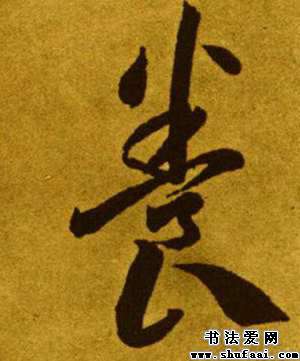 養
书法爱网
www.shufaai.com